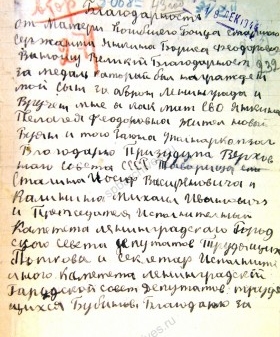 Благодарность
от Матери погибшего бойца старшего
сержанта Яшкина Бориса Федоровича
Выношу Великую Благодарность
за медаль который был награжден
мой сын за оброну Ленинграда и
Вручен мне как мат его Яшкина
Пелагея Федоровна Жител новой
Бухви и того Района
Благодарю Призидума Верхов
ного Совета СССР Товарища
Сталина Иосиф Васирионовича и
Калинина Михаил Ивановича
и Препседателя Исполнительный
Камитета Ленинградскаго Город
ского Совета депутатов Трудящихся
Попкова и секретар Исполните
лного Камитета Ленинградскй
Гарадской совет депутатов трудя
щихся Бубнова Благодарю за